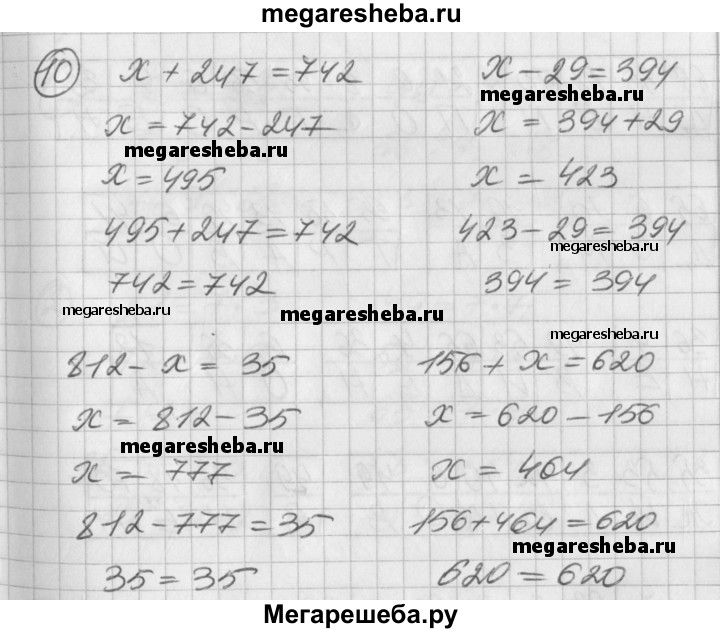 megaresheba.ru
10 x + 247 = 742
x = 742 - 247
megaresheba.ru
x = 495
495 + 247 = 742
742 = 742
megaresheba.ru
x - 29 = 394
megaresheba.ru
x = 394 + 29
x = 423
423 - 29 = 394
megaresheba.ru
394 = 394
megaresheba.ru
812 - x = 35
x = 812 - 35
megaresheba.ru
x = 777
812 - 777 = 35
35 = 35
megaresheba.ru
156 + x = 620
x = 620 - 156
x = 464
156 + 464 = 620
megaresheba.ru
620 = 620
Мегарешеба.ру